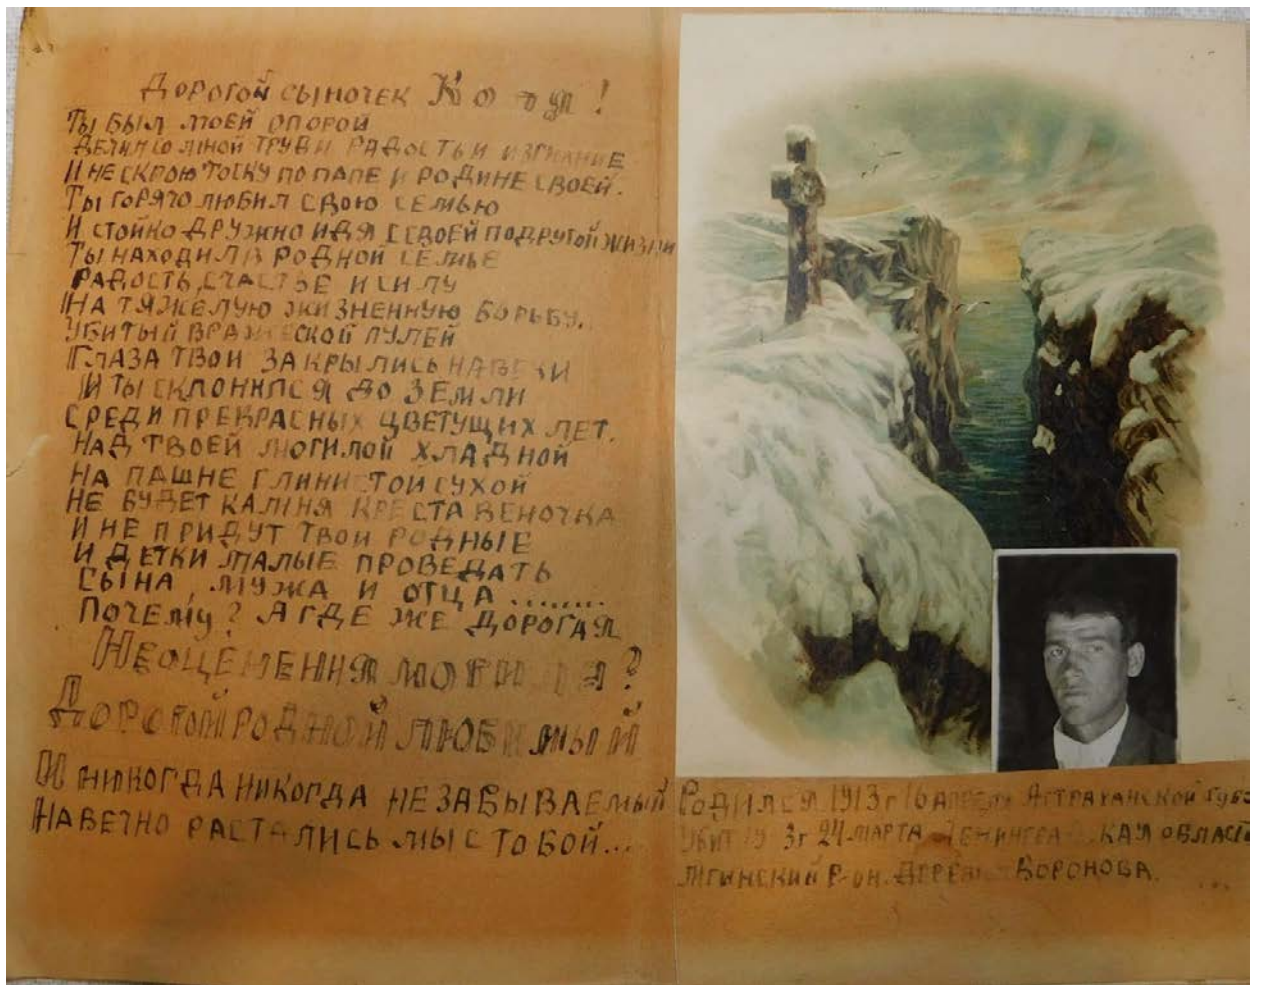 Дорогой сыночек Коля!
Ты был моей опорой
Делил со мной труд и радость и изгнание
И не скрою тоску по папе и родине своей.
Ты горячо любил свою семью
И стойко дружно идя с своей подругой жизни
Ты находил в родной семье
Радость, счастье и силу
На тяжелую жизненную борьбу.
Убитый вражеской пулей
Глаза твои закрылись навеки
И ты склонился до земли
Среди прекрасных цветущих лет.
Над твоей могилой хладной
На пашне глинистой сухой
Не будет камня креста веночка
И не придут твои родные
И детки малые проведать
Сына, мужа и отца........
Почему? А где же дорогая
Неоценення могила?
Дорогой родной любимый
И никогда никогда не забываемый
Навечно растались мы с тобой...
Родился 1913 г 16 апреля Астраханской губ
Убит 24 марта Ленинградская област
Мгинский р-он. Воронова.